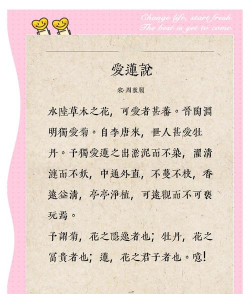 Change life, start fresh
The best is yet to come.
愛蓮說
宋·周敦頤
水陸草木之花，可愛者甚蕃。晉陶淵
明獨愛菊。自李唐來，世人甚愛牡
丹。予獨愛蓮之出淤泥而不染，濯清
漣而不妖，中通外直，不蔓不枝，香
遠益清，亭亭淨植，可遠觀而不可褻
玩焉。
予謂菊，花之隱逸者也；牡丹，花之
富貴者也；蓮，花之君子者也。噫！